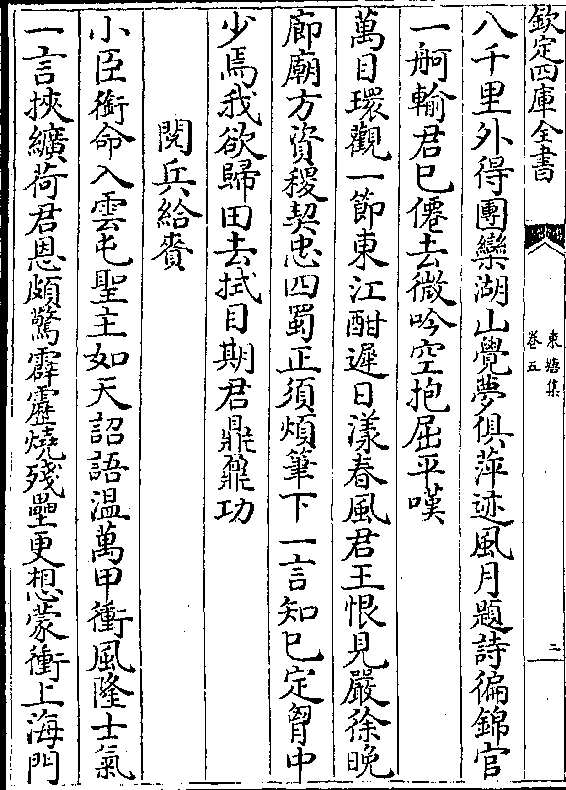 欽定四庫全書
東塘集
卷五
二
八千里外得團欒湖山覺夢俱萍迹風月題詩徧錦官
一舸輸君已僊去微吟空抱屈平嘆
萬目環觀一節東江酣遲日漾春風君王恨見嚴徐晚
廊廟方資稷契忠四蜀正須煩筆下一言知已定胷中
少焉我欲歸田去拭目期君鼎鼐功
閱兵給賚
小臣銜命入雲屯聖主如天詔語温萬甲衝風隆士氣
一言挾纊荷君恩頗驚霹靂燒殘壘更想蒙衝上海門